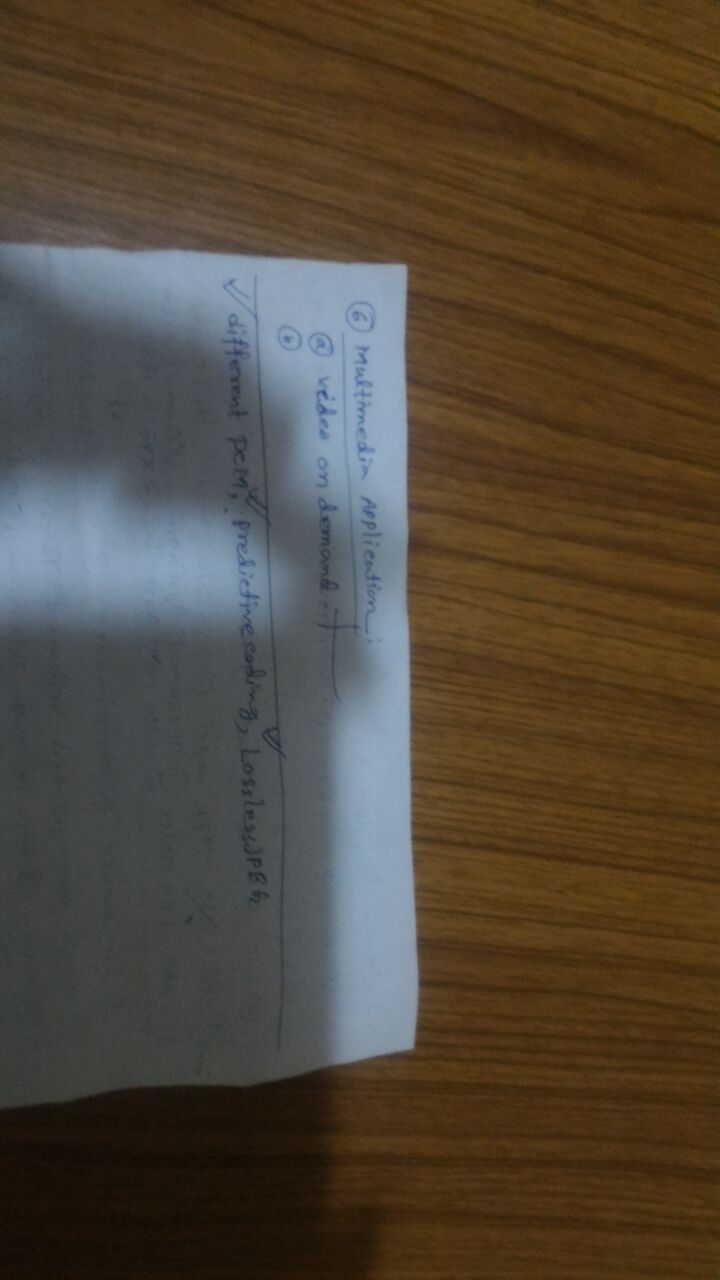 ⑥ Multimedia Application:
ⓐ video on demand:
ⓑ
✓ different PCM, ✓ predictive coding, ✓ Lossless JPEG